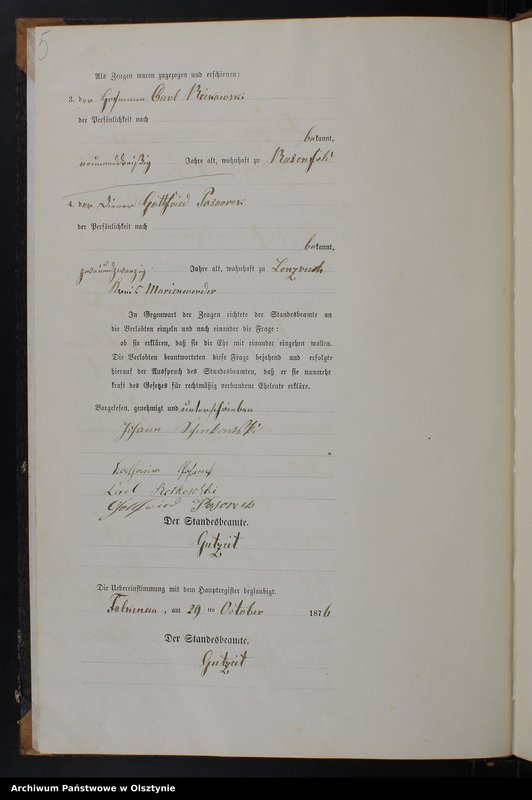 5
Als Zeugen waren zugezogen und erschienen:
3. der Hofmann Carl
der Persönlichkeit nach
bekannt,
neununddreißig Jahre alt, wohnhaft zu Rasenfeld
4. der Diener Gottfried
der Persönlichkeit nach
bekannt,
zweiundzwanzig Jahre alt, wohnhaft zu
Kreis Marienwerder
In Gegenwart der Zeugen richtete der Standesbeamte an
die Verlobten einzeln und nach einander die Frage:
ob sie erklären, daß sie die Ehe mit einander eingehen wollen.
Die Verlobten beantworteten diese Frage bejahend und erfolgte
hierauf der Ausspruch des Standesbeamten, daß er sie nunmehr
kraft des Gesetzes für rechtmäßig verbundene Eheleute erkläre.
Vorgelesen, genehmigt und unterschrieben
Johann
Carl
Gottfried
Der Standesbeamte.
Gutzeit
Die Uebereinstimmung mit dem Hauptregister beglaubigt.
am 29 ten October 1876
Der Standesbeamte.
Gutzeit
Archiwum Państwowe w Olsztynie